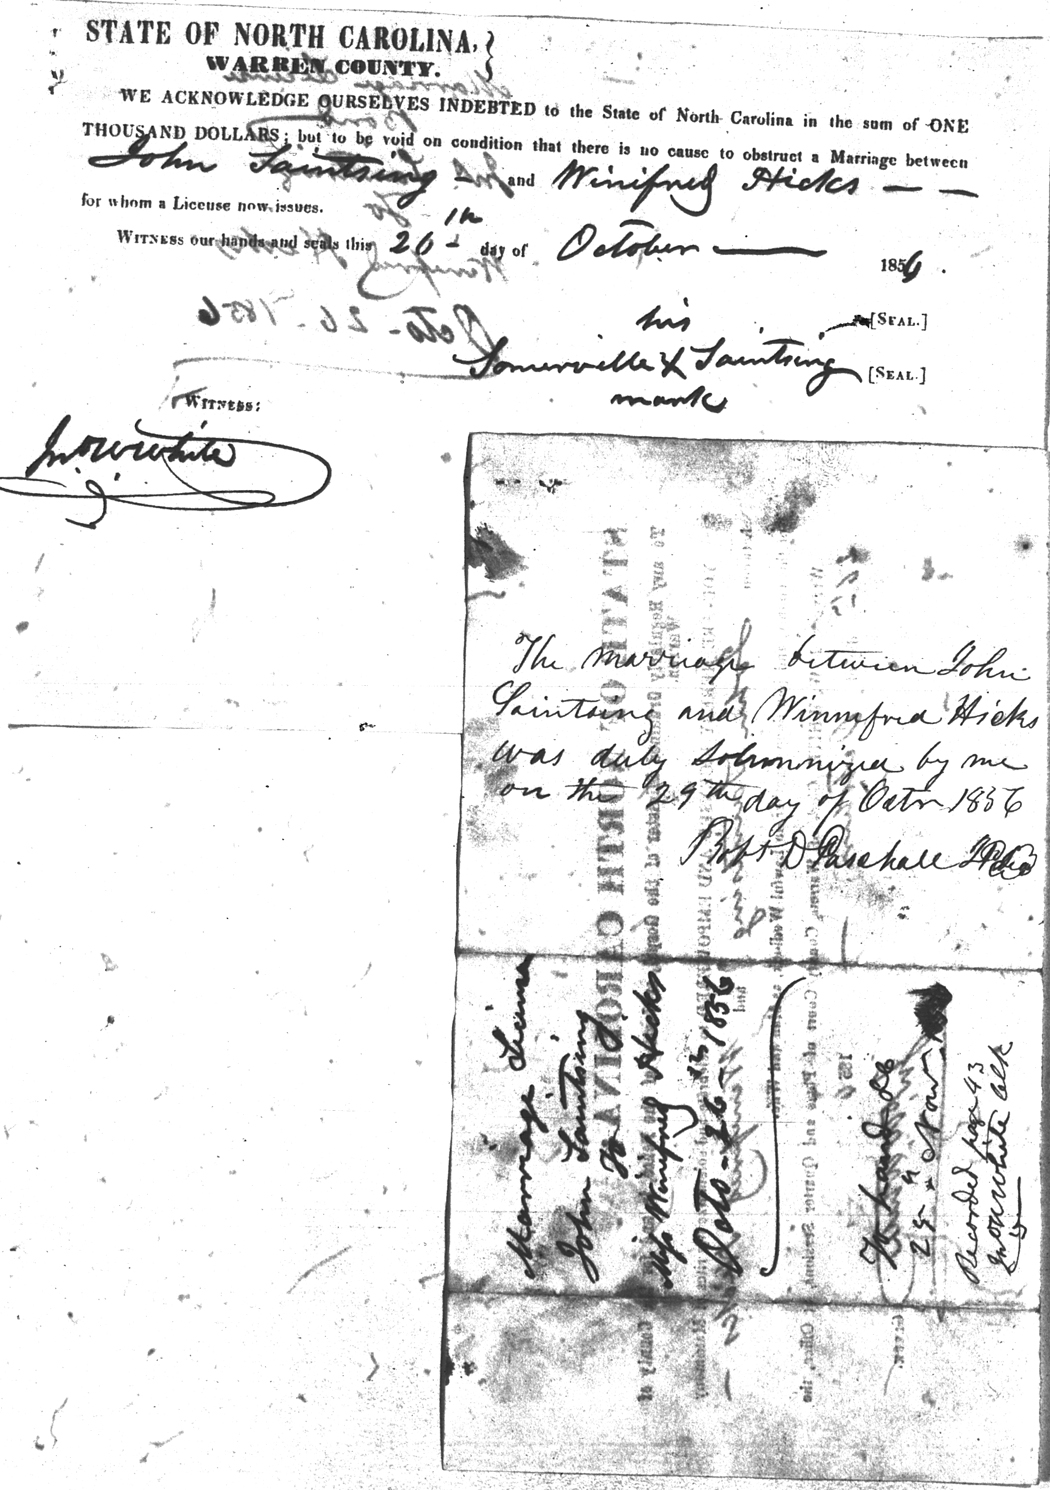 STATE OF NORTH CAROLINA,
WARREN COUNTY.
WE ACKNOWLEDGE OURSELVES INDEBTED to the State of North Carolina in the sum of ONE
THOUSAND DOLLARS; but to be void on condition that there is no cause to obstruct a Marriage between
John Saintsing and Winifred Hicks
for whom a License now issues.
WITNESS our hands and seals this 26th day of October 1856.
his [SEAL.]
Somerville X Saintsing [SEAL.]
mark
WITNESS:
Jno W White
The marriage between John
Saintsing and Winnefred Hicks
was duly solromnized by me
on the 29th day of Octr 1856
Robt D Paschall
Marriage License
John Saintsing
To
Miss Winifred Hicks
Octo- 26th 1856
To hand
25 " Nov
Recorded page 43
Jno W White Clk